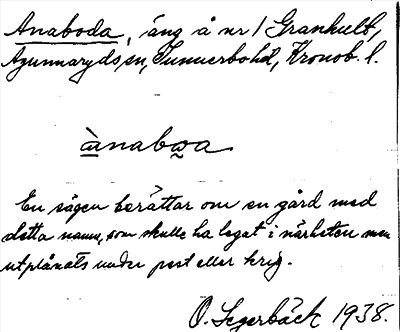 Anaboda, äng å nr 1 Granhult,
Agunnaryds sn, Sunnerbo hd, Kronob. l.
ànabωa
En sägen berättar om en gård med
detta namn, som skulle ha legat i närheten men
utplånats under pest eller krig.
O. Segerbäck 1938.